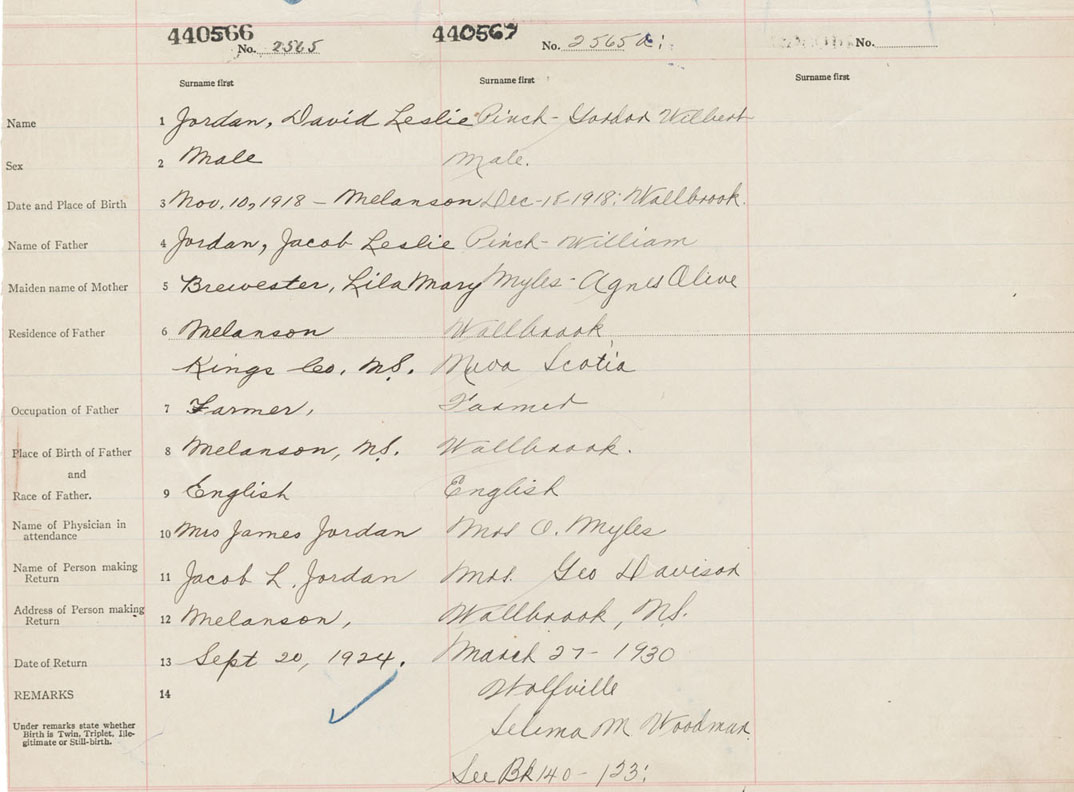 440566 No. 2565 440567 No. 2565 a: No.
Surname first Surname first Surname first
Name 1 Jordan, David Leslie Pinch - Gordon Wilbert
Sex 2 Male Male.
Date and Place of Birth 3 Nov. 10, 1918 - Melanson Dec-18-1918: Wallbrook.
Name of Father 4 Jordan, Jacob Leslie Pinch - William
Maiden name of Mother 5 Brewester, Lila Mary Myles - Agnes Olive
Residence of Father 6 Melanson Wallbrook
Kings Co. N.S. Nova Scotia
Occupation of Father 7 Farmer, Farmer
Place of Birth of Father 8 Melanson, N.S. Wallbrook.
and
Race of Father. 9 English English
Name of Physician in
attendance 10 Mrs James Jordan Mrs O. Myles
Name of Person making
Return 11 Jacob L. Jordan Mrs. Geo Davison
Address of Person making
Return 12 Melanson, Wallbrook, N.S.
Date of Return 13 Sept 20, 1924. March 27 - 1930
REMARKS 14 Wolfville
Under remarks state whether
Birth is Twin, Triplet, Ille-
gitimate or Still-birth.
Selima M Woodman
See Bk 140 - 123: